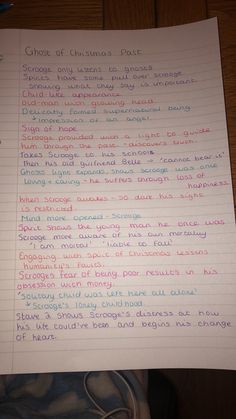 Ghost of Christmas Past
Scrooge only listens to ghosts
Spirits have some pull over scrooge
showing what they say is important
Child-like appearance
Old-man with glowing head.
Delicatly formed supernatural being
impression of an angel
Sign of hope
Scrooge provided with a light to guide
him through the past - discovers truth.
Takes Scrooge to his schools
then his old girlfriend Belle → 'cannot bear it'
Ghosts light expands, shows scrooge was once
loving + caring - he suffers through loss of
happiness
When scrooge awakes - so dark his sight
is restricted.
Mind more opened - Scrooge.
Spirit shows the young man he once was
Scrooge more aware of his own mortality
'I am mortal' 'liable to fall'
Engaging with spirit of Christmas lessens
humanity's faults.
Scrooges fear of being poor results in his
obsession with money.
'solitary child was left here all alone'
→ Scrooge's lonely childhood.
Stave 2 shows Scrooge's distress at how
his life could've been and begins his change
of heart.